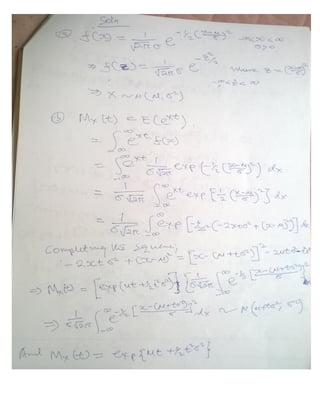 Soln
(a) f(x) = 1/√2π σ e^-1/2(x-μ/σ)² -∞<x<∞ σ>0
⇒ f(z) = 1/√2π σ e^-z²/2 where z = (x-μ/σ) -∞<z<∞
⇒ X ~ N(μ, σ²)
(b) Mx(t) = E(e^xt)
= ∫_-∞^∞ e^xt f(x)
= ∫_-∞^∞ e^xt 1/σ√2π exp{-1/2(x-μ/σ)²} dx
= 1/σ√2π ∫_-∞^∞ e^xt exp[-1/2(x-μ/σ)²] dx
= 1/σ√2π ∫_-∞^∞ exp[-1/2σ²(-2xtσ² + (x-μ)²)] dx
Completing the square,
-2xtσ² + (x-μ)² = [x-(μ+tσ²)]² - 2μtσ²
⇒ Mx(t) = [exp(μt + 1/2t²σ²)] {1/σ√2π ∫_-∞^∞ e^-1/2[x-(μ+tσ²)/σ]²
⇒ 1/σ√2π ∫_-∞^∞ e^-1/2[x-(μ+tσ²)/σ]² dx ~ N(μ+tσ², σ²)
And Mx(t) = exp{μt + 1/2t²σ²}